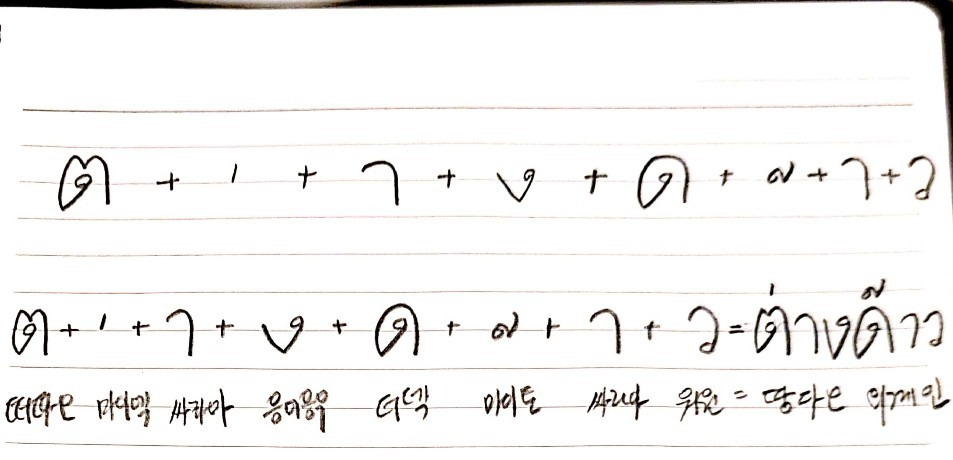 ต + ่ + า + ง + ด + ้ + า + ว
ต + ่ + า + ง + ด + ้ + า + ว = ต่างด๊าว
마이엑 싸라아 응어응우 더덱 마이토 싸라아 워왠 = 땅다오 외계인